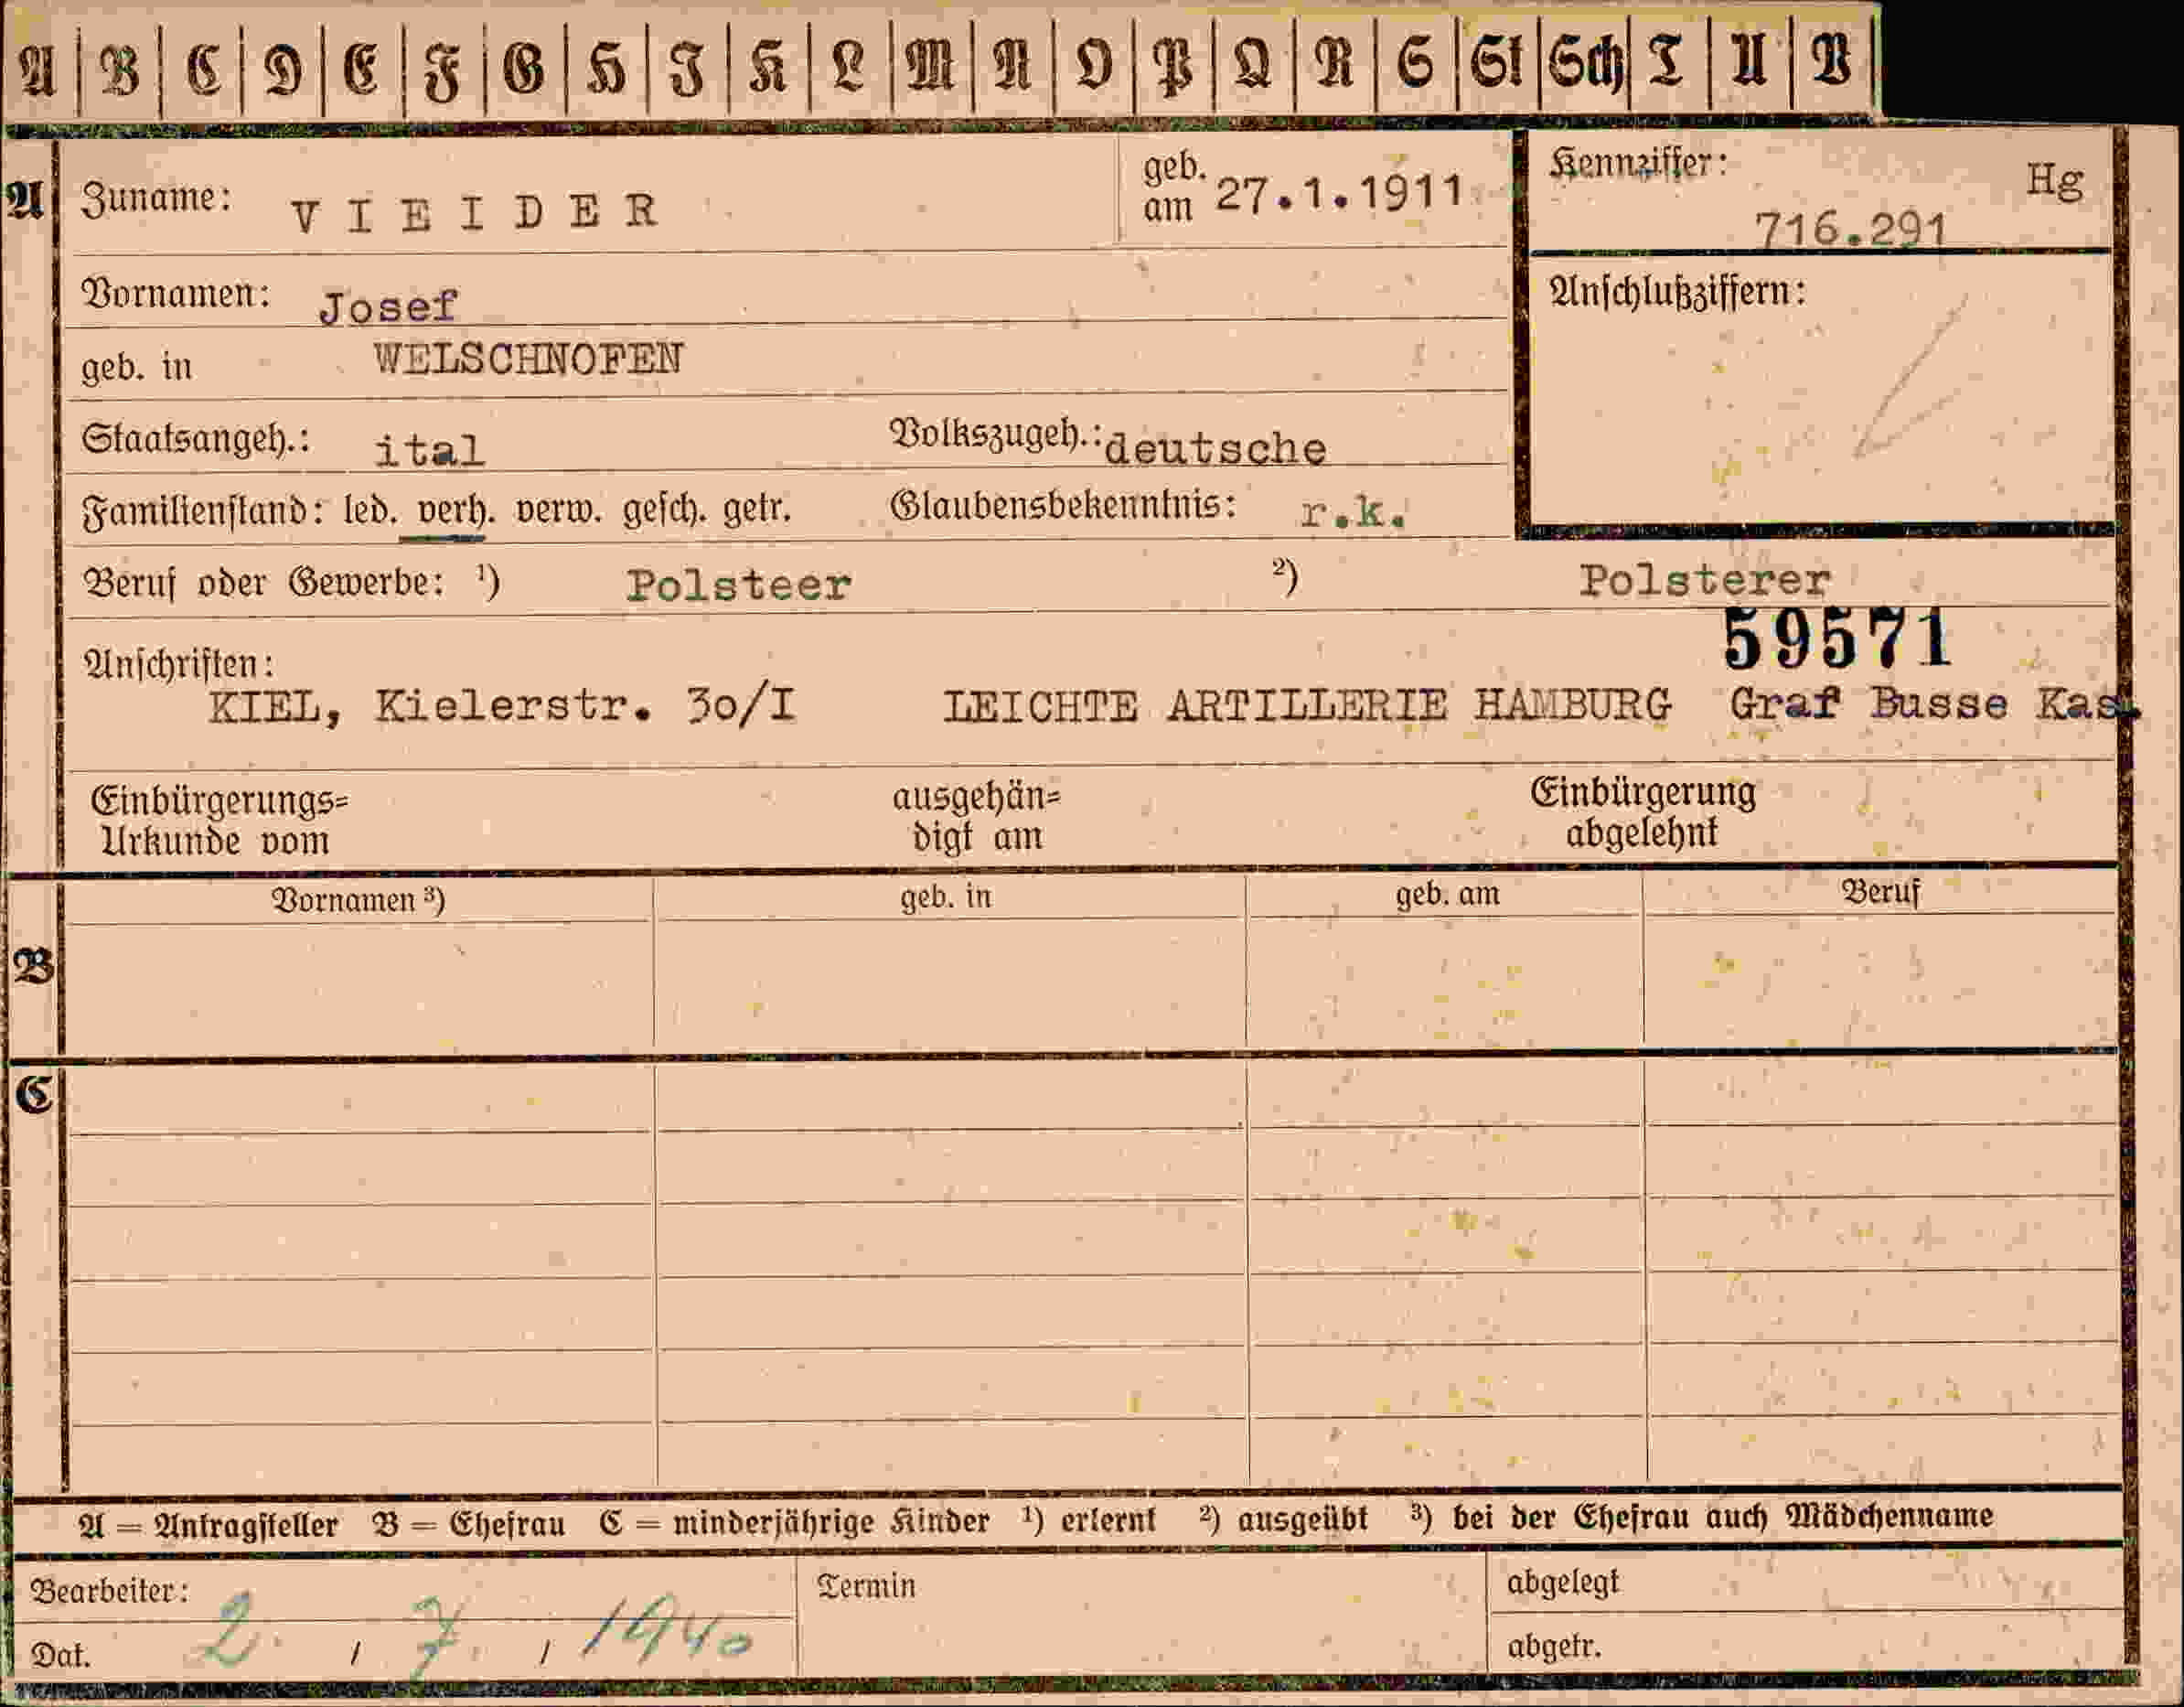 A B C D E F G H I K L M N O P Q R S St Sch T U V
A Zuname: VIEIDER geb. am 27.1.1911 Kennziffer: Hg
716.291
Vornamen: Josef Anschlußziffern:
geb. in WELSCHNOFEN
Staatsangeh.: ital Volkszugeh.: deutsche
Familienstand: led. verh. verw. gesch. getr. Glaubensbekenntnis: r.k.
Beruf oder Gewerbe: ¹) Polsteer ²) Polsterer
59571
Anschriften:
KIEL, Kielerstr. 30/I LEICHTE ARTILLERIE HAMBURG Graf Busse Kas.
Einbürgerungs= ausgehän= Einbürgerung
Urkunde vom digt am abgelehnt
Vornamen ³) geb. in geb. am Beruf
B
C
A = Antragsteller B = Ehefrau C = minderjährige Kinder ¹) erlernt ²) ausgeübt ³) bei der Ehefrau auch Mädchenname
Bearbeiter: Termin abgelegt
Dat. 2. / 7. / 1940 abgetr.